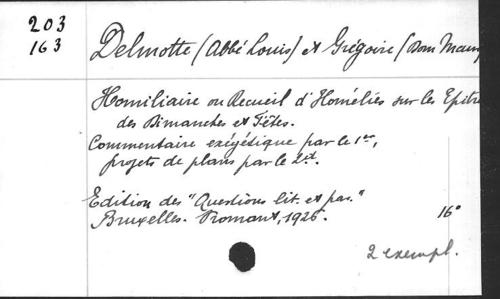 203
163
Delmotte (Abbé Louis) et Grégoire (Dom Maur
Homiliaire ou Recueil d'Homélies sur les Epitre
des Dimanches et Fêtes.
Commentaire exégétique par le 1er,
projets de plans par le 2d.
Edition des "Questions lit. et par."
Bruxelles. Vromant, 1926.
16°
2 exempl.